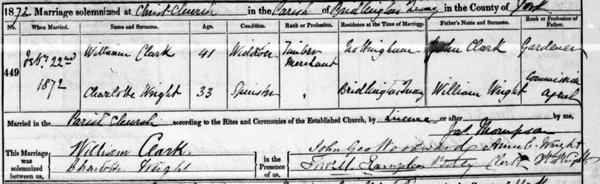 1872 Marriage solemnized at Christ Church in the Parish of Bridlington Quay in the County of York
No. When Married. Name and Surname. Age. Condition. Rank or Profession. Residence at the Time of Marriage. Father's Name and Surname. Rank or Profession of Father.
449 Feby 22nd 1872 William Clark 41 Widower Timber Merchant Nottingham John Clark Gardener
Charlotte Wright 33 Spinster Bridlington Quay William Wright Commission Agent
Married in the Parish Church according to the Rites and Ceremonies of the Established Church, by Licence or after by me,
Jas Thompson
This Marriage was solemnized between us, William Clark
Charlotte Wright
in the Presence of us, John Geo Woodward Annie C. Wright
Clark Wm Wright